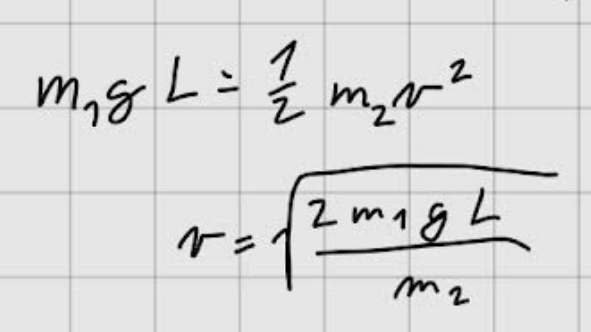 m₁g L = ½ m₂v²
v = √(2 m₁ g L / m₂)